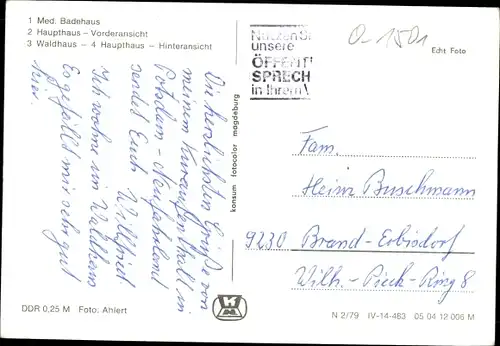 1 Med. Badehaus
2 Haupthaus - Vorderansicht
3 Waldhaus - 4 Haupthaus - Hinteransicht
Nutzen Si
unsere
ÖFFENTL
SPRECH
in Ihrem
0-1501
Echt Foto
Die herzlichsten Grüße von
meinem Kuraufenthalt in
Potsdam - Neufahrland
sendet Euch Wilfried
Ich wohne im Waldhaus
Es gefällt mir sehr gut
hier.
konsum fotocolor magdeburg
Fam.
Heinz Buschmann
9230 Brand-Erbisdorf
Wilh.-Pieck-Ring 8
DDR 0,25 M Foto: Ahlert
N 2/79 IV-14-483 05 04 12 006 M